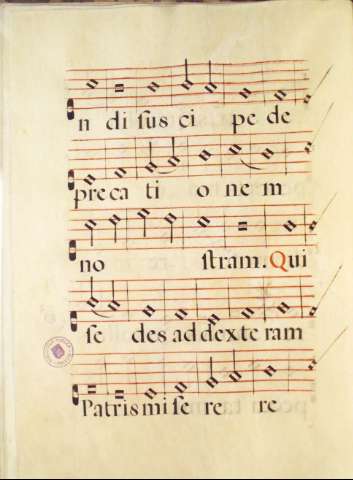 n di sus ci pe de
pre ca ti o ne m
no stram. Qui
se des ad dexte ram
Patris mi se re re